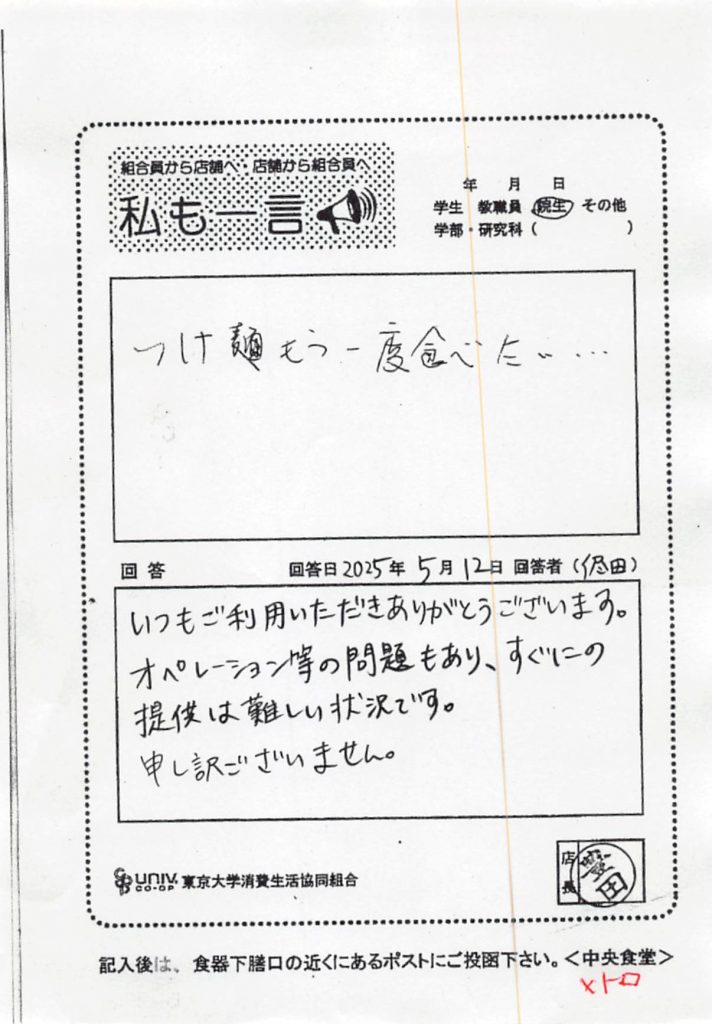 組合員から店舗へ・店舗から組合員へ
私も一言
年 月 日
学生 教職員 院生 その他
学部・研究科( )
つけ麺もう一度食べたい…
回答 回答日2025年5月12日 回答者(田)
いつもご利用いただきありがとうございます。
オペレーション等の問題もあり、すぐにの
提供は難しい状況です。
申し訳ございません。
UNIV. CO-OP 東京大学消費生活協同組合
店長 豊田
記入後は、食器下膳口の近くにあるポストにご投函下さい。<中央食堂>
メトロ